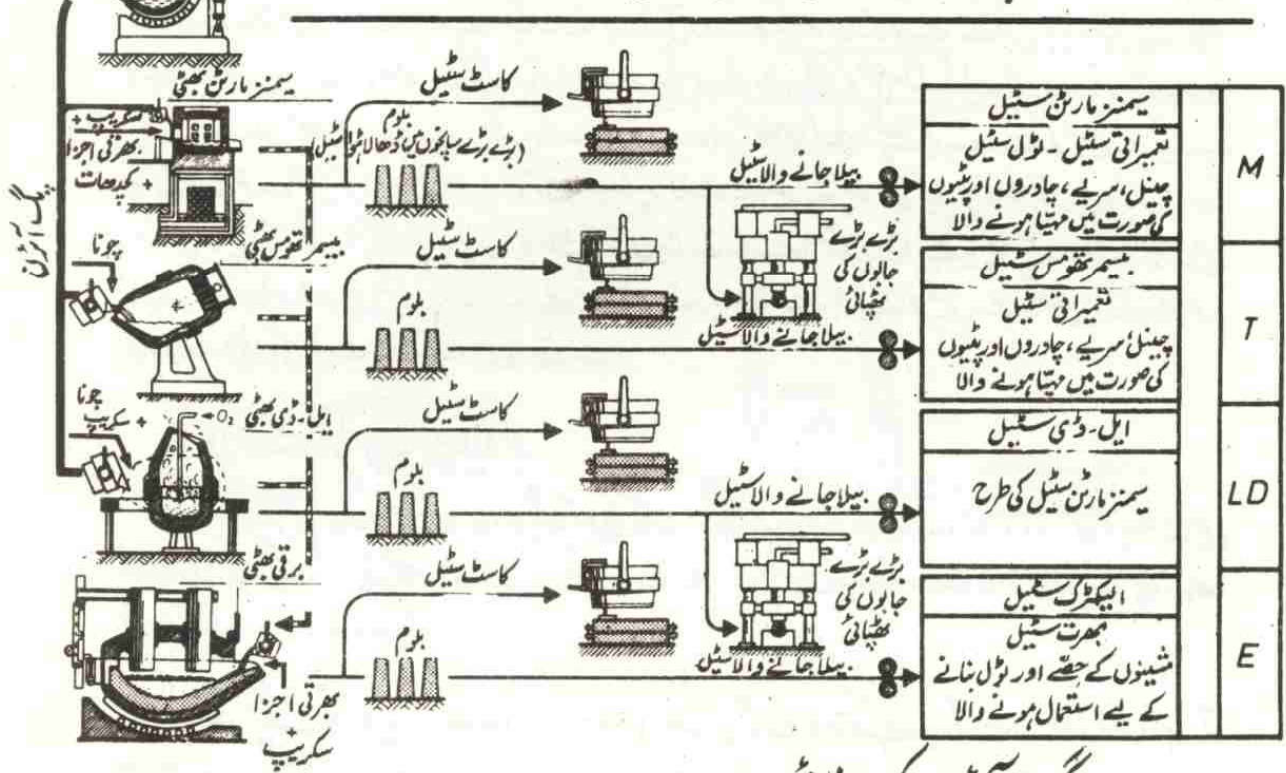 سیمنز مارٹن بھٹی
کاسٹ سٹیل
سکریپ +
بھرتی اجزا
+ کچدھات
پگ آئرن
بلوم
(بڑے بڑے سانچوں میں ڈھالا ہوا سٹیل)
بیلا جانے والا سٹیل
سیمنز مارٹن سٹیل
تعمیراتی سٹیل - ٹول سٹیل
چینل، سریے، چادروں اور پٹیوں
کی صورت میں مہیا ہونے والا
M
چونا
بیسمر تھومس بھٹی
کاسٹ سٹیل
بلوم
بڑے بڑے
جابوں کی
ٹھپائی
بیلا جانے والا سٹیل
بیسمر تھومس سٹیل
تعمیراتی سٹیل
چینل، سریے، چادروں اور پٹیوں
کی صورت میں مہیا ہونے والا
T
چونا
+ سکریپ
O₂
ایل - ڈی بھٹی
کاسٹ سٹیل
بلوم
بیلا جانے والا سٹیل
ایل - ڈی سٹیل
سیمنز مارٹن سٹیل کی طرح
LD
برقی بھٹی
کاسٹ سٹیل
بلوم
بڑے بڑے
جابوں کی
ٹھپائی
بیلا جانے والا سٹیل
بھرتی اجزا
+
سکریپ
الیکٹرک سٹیل
بھرت سٹیل
مشینوں کے حصے اور ٹول بنانے
کے لیے استعمال ہونے والا
E